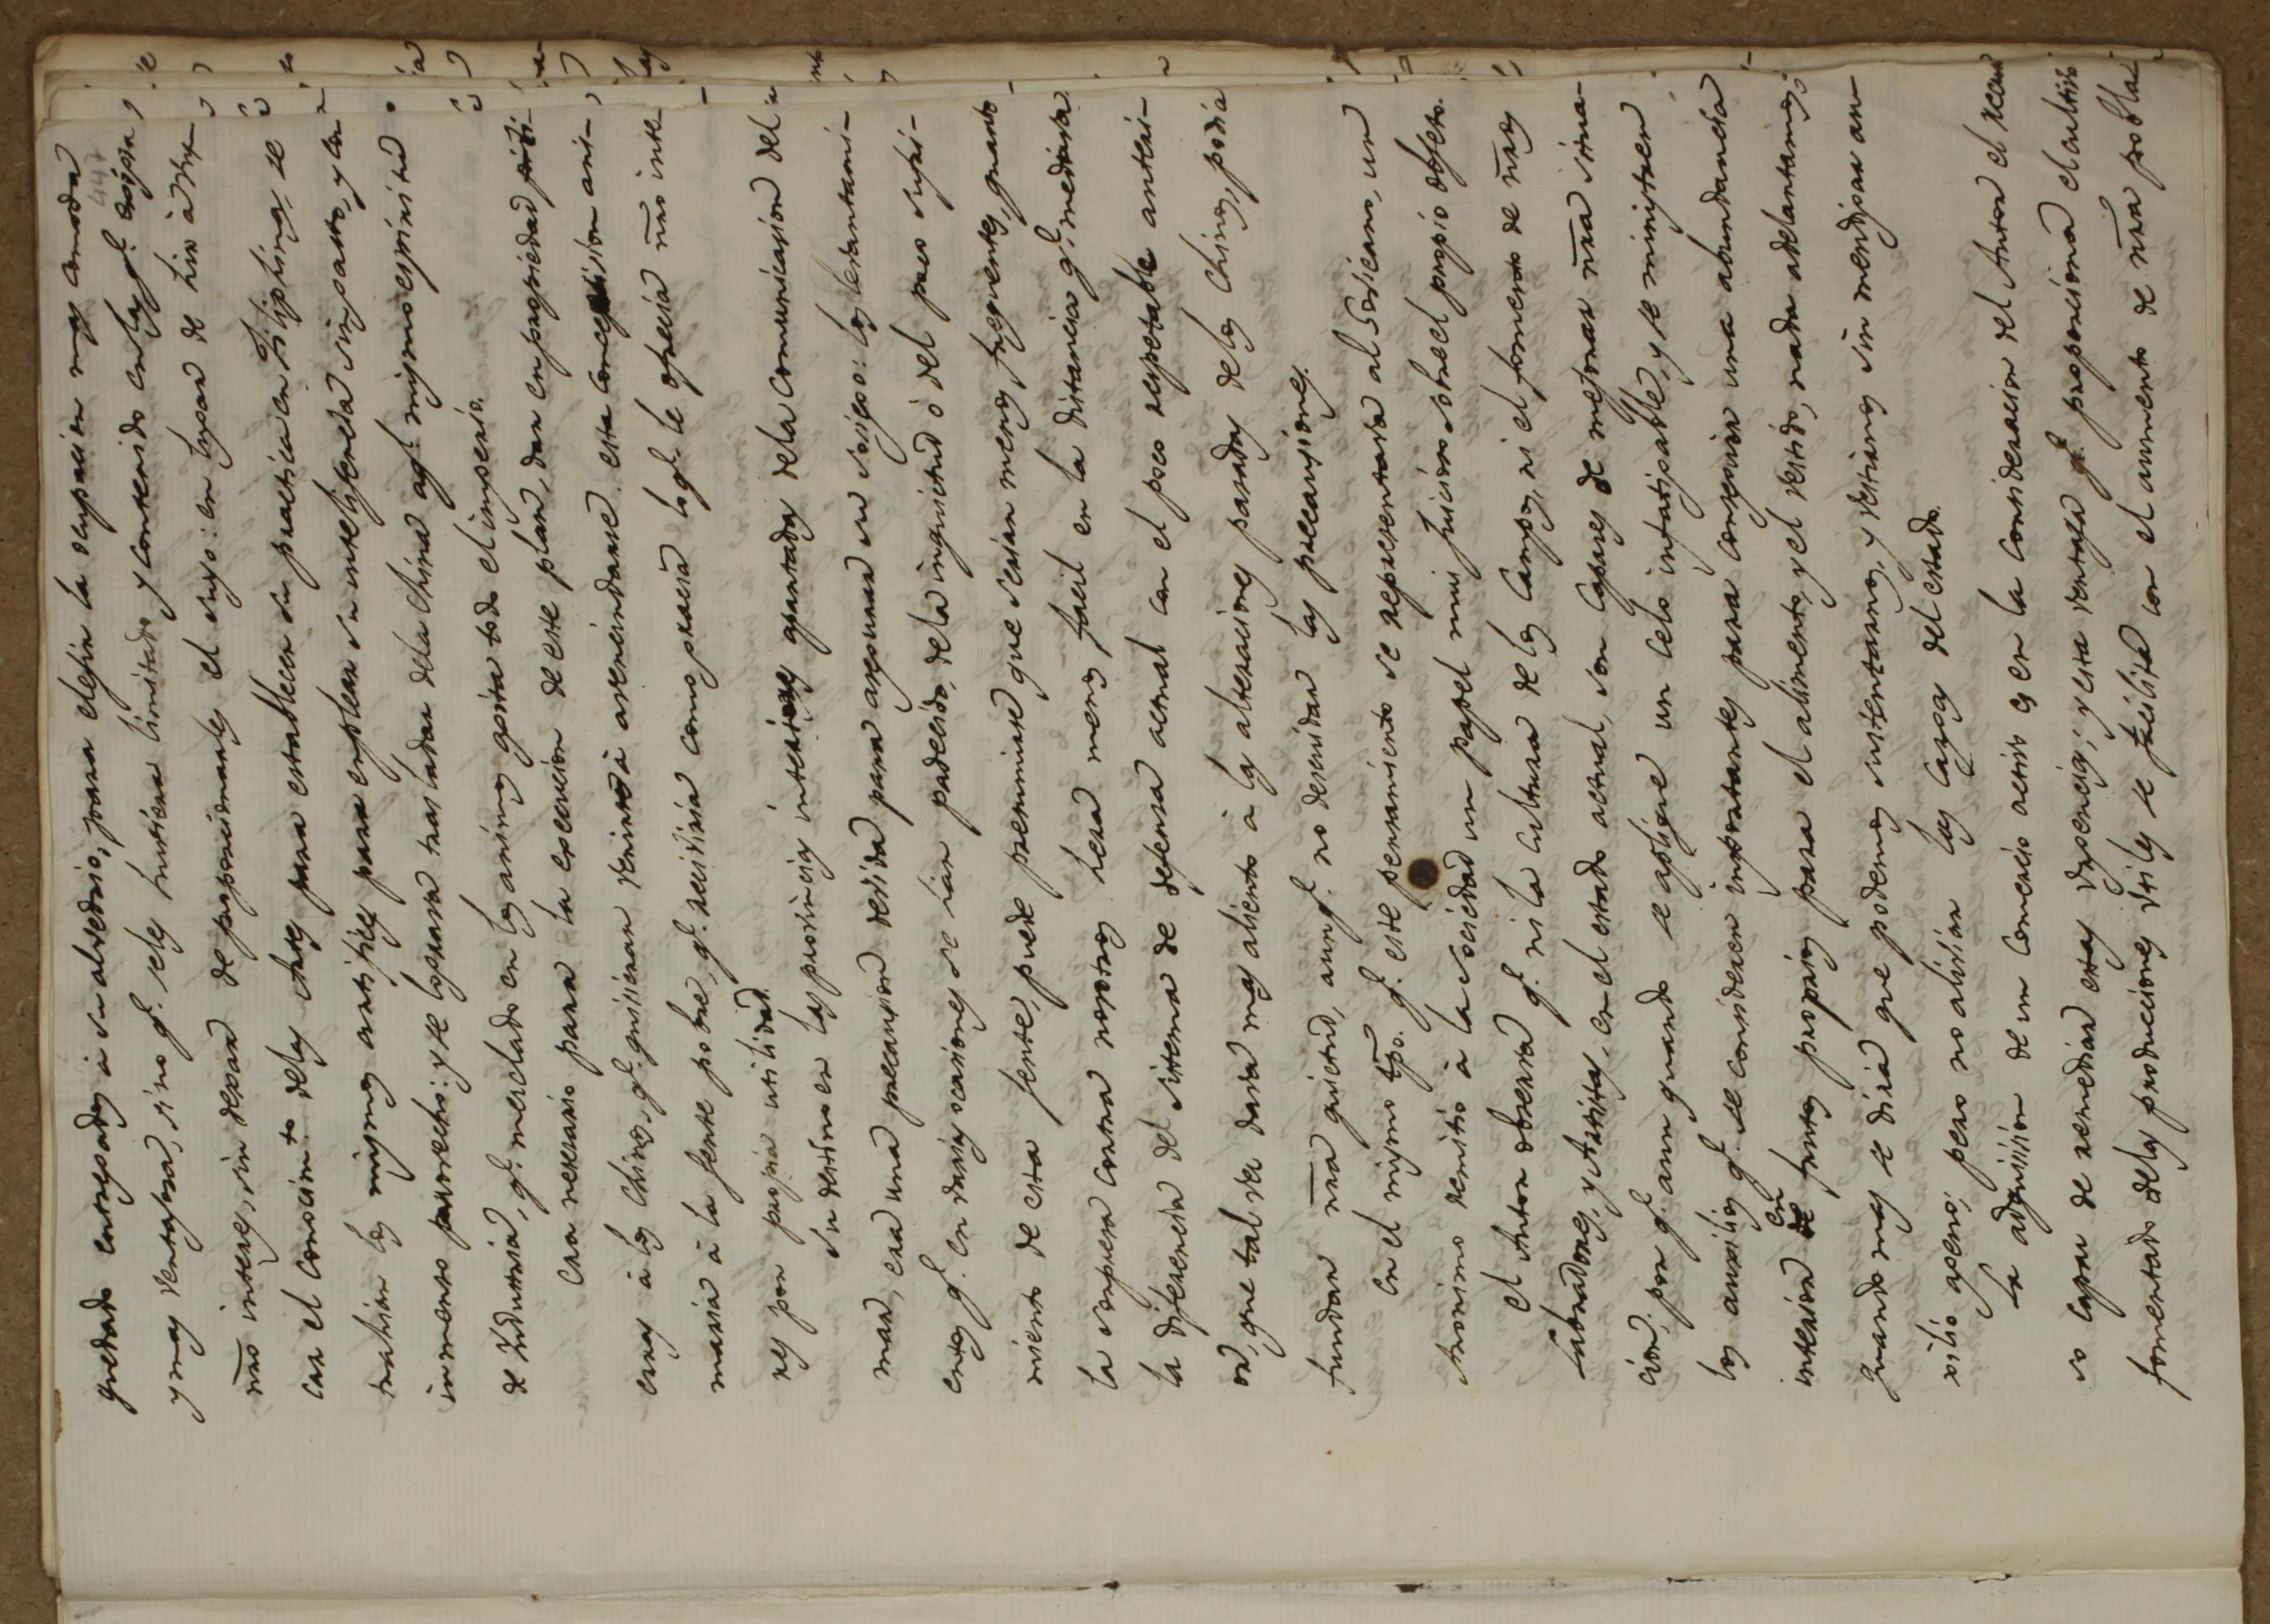 quedado entregados à su alvedrio, para elegir la ocupacion mas comoda
y mas ventajosa, sino qᵉ. se les huviera limitado y contenido en las qᵉ.
n̄ro interes, sin dexar de proporcionarles el suyo: en lugar de
car el conocimᵗᵒ. delas Artes para establecer su practica en Filipinas, se
trahian los mismos artifices para emplear su inteligencia sin gasto, y con
inmenso provecho: y se lograra trasladar dela China aqᶜ. mismo espiritu
de Industria, qᵉ. mesclado en los animos agita todo el imperio.
Era necesario para la execucion de este plan, dar en propriedad
erras à los Chinos, qᵉ. quisieran venir à avecindarse. esta
maria à la gente pobre, qᵉ. recivirìa como precisa lo qᵉ. le ofrecia n̄ro inte-
res por propia utilidad.
Su destino en las provincias interiores apartados dela comunicacion del
mar, era una precaucion devida para asegurar su sosiego: los levantami-
entos qᵉ. en varias ocasiones se han padecido, dela inquietud ò del poco sufri-
miento de esta gente, puede presumirse que serian menos frequentes, quanto
la sorpresa contra nosotros hera menos facil en la distancia qᵉ. mediava.
la diferencia del sistema de defensa actual con el poco respetable anteri-
or, que tal vez daria mas aliento à las alteraciones pasadas delos Chinos, podia
fundar n̄ra quietud, aunqᵉ. no descuidar las precauciones.
En el mismo tp̄o. qᵉ. este pensamiento se representava al Govierno, un
Anonimo remitiò à la sociedad un papel mui juicioso sobre el propio objeto.
El Autor observa qᵉ. ni la cultura de los Campos, ni el fomento de n̄ros
Labradores, y Artistas, en el estado actual, son capaces de mejorar n̄ra situa-
cion; por qᵉ. aun quando se aplique un celo infatigable, y se ministren
los auxilios qᵉ. se consideren importantes para conseguir una abundancia
interior de en frutos propios para el alimento, y el vestido, nada adelantamos;
quando mas se dirà que podemos sustentarnos, y vestirnos sin mendigar au-
xilio ageno; pero no alivian las cargas del estado.
La adquisicion de un Comercio activo es en la consideracion del Autor el recur
so capaz de remediar estas urgencias; y esta ventaja qᵉ. proporciona el cultivo
fomentado delas producciones utiles se facilita con el aumento de n̄ra pobla-